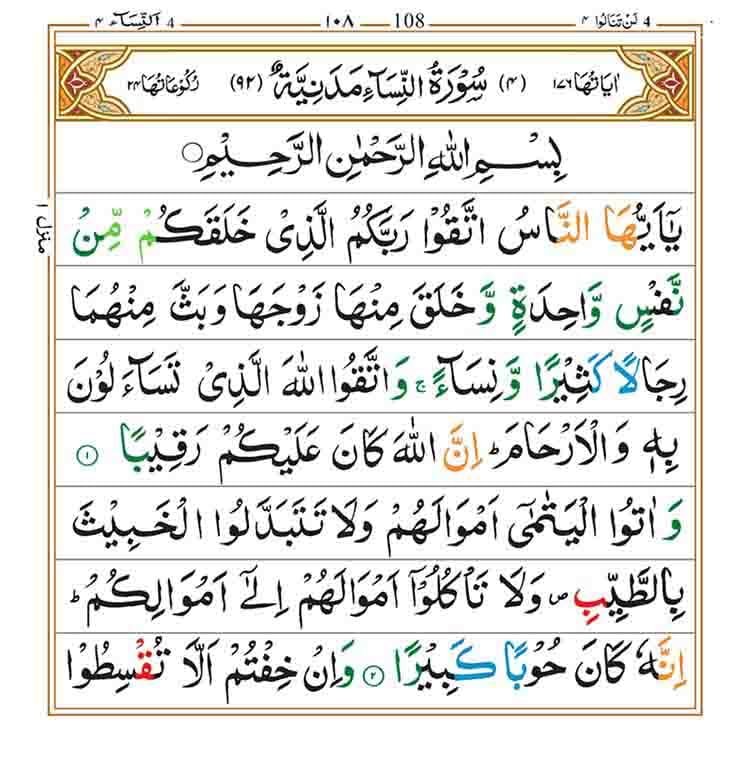 لَنْ تَنَالُوا ٤ 4 108 ١٠٨ اَلنِّسَآء ٤ 4
اٰيَاتُهَا ١٧٦ (٤) سُوْرَةُ النِّسَآءِ مَدَنِيَّةٌ (٩٢) رُكُوْعَاتُهَا ٢٤
بِسْمِ اللّٰهِ الرَّحْمٰنِ الرَّحِيْمِ
يٰۤاَيُّهَا النَّاسُ اتَّقُوْا رَبَّكُمُ الَّذِىْ خَلَقَكُمْ مِّنْ
نَّفْسٍ وَّاحِدَةٍ وَّخَلَقَ مِنْهَا زَوْجَهَا وَبَثَّ مِنْهُمَا
رِجَالًا كَثِيْرًا وَّنِسَآءً ۚ وَاتَّقُوا اللّٰهَ الَّذِىْ تَسَآءَلُوْنَ
بِهٖ وَالْاَرْحَامَ ؕ اِنَّ اللّٰهَ كَانَ عَلَيْكُمْ رَقِيْبًا ۝١
وَاٰتُوا الْيَتٰمٰۤى اَمْوَالَهُمْ وَلَا تَتَبَدَّلُوا الْخَبِيْثَ
بِالطَّيِّبِ ۪ وَلَا تَاْكُلُوْۤا اَمْوَالَهُمْ اِلٰٓى اَمْوَالِكُمْ ؕ
اِنَّهٗ كَانَ حُوْبًا كَبِيْرًا ۝٢ وَاِنْ خِفْتُمْ اَلَّا تُقْسِطُوْا
منزل ١